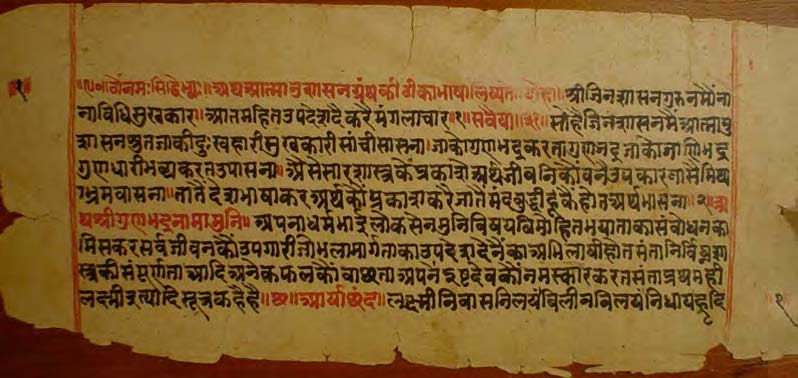 ॥र्द०॥ ओंनमः सिद्धेभ्यः॥ अथ आत्मानुशासनग्रंथकी टीका भाषा लिख्यते॥ दोहा॥ श्रीजिनशासनगुरु नमौं नां
नाविधि सुखकार॥ आतमहित उपदेशदै करै मंगलाचार॥१॥ सवैया॥३१॥ सोहै जिनशासनमैं आत्मानु
शासन श्रुत जाकी दुःखहारी सुखकारी सांची सासना॥ जाको गुणभद्र करता गुणभद्र जाको जाणि भद्र
गुणधारी भव्य करत उपासना॥ ऐसे सार शास्त्रकौं प्रकाशै अर्थ जीवनिकौं बनै उपकार नासै मिथ्य
भ्रम वासना॥ तातै देशभाषा कर अर्थकौं प्रकाश करै जातै मंदबुद्धीहूकै होत अर्थ भासना॥२॥ अ
थ श्रीगुणभद्रनामा मुनि॥ अपना धर्मभाई लोकसेन मुनि विषय विमोहित भया ताका संबोधनका
मिसकर सर्व जीवनकौं उपगारी जो भला मार्ग ताका उपदेश देनेंका अभिलाषी होत संता निर्विघ्न शा
स्त्रकी संपूर्णता आदि अनेक फलकौं वांछता अपनें इष्टदेवकौं नमस्कार करत संता प्रथमही
लक्ष्मी इत्यादि सूत्र कहै है॥छ॥ आर्याछंद॥ लक्ष्मीनिवासनिलयं विलीनविलयं निधाय हृदि
१